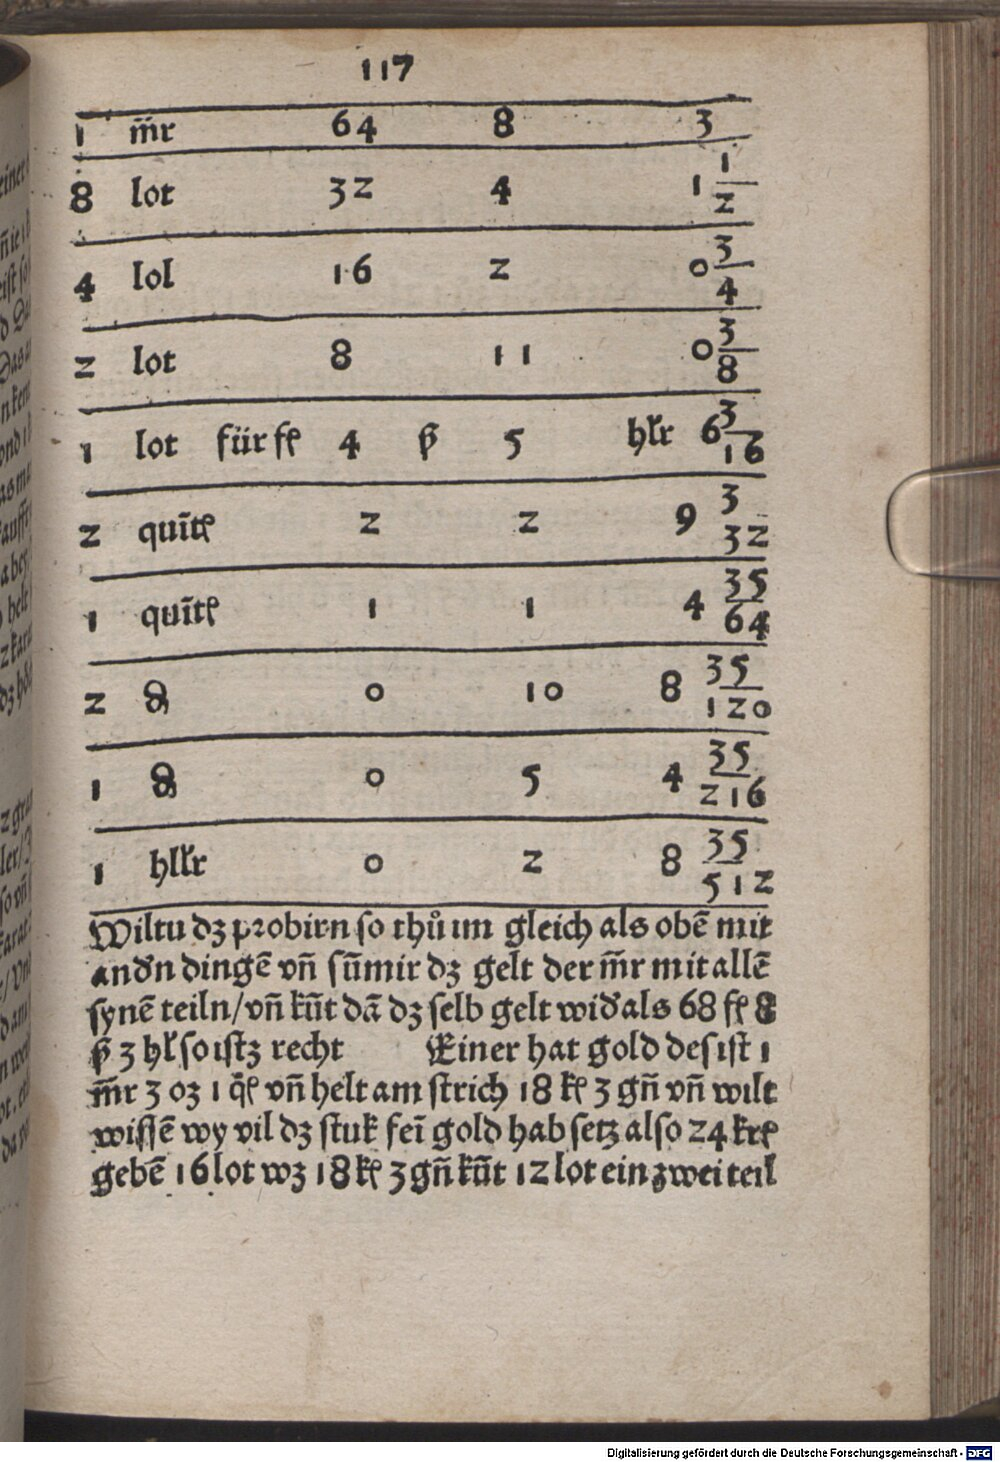 117
1 m̄r 64 8 3
8 lot 32 4 1 1/2
4 lol 16 2 0 3/4
2 lot 8 11 0 3/8
1 lot für fl 4 ß 5 hlr 6 3/16
2 quīt 2 2 9 3/32
1 quīt 1 1 4 35/64
2 ₰ 0 10 8 35/120
1 ₰ 0 5 4 35/216
1 hllr 0 2 8 35/512
Wiltu dz probirn so thů im gleich als obē mit
andn dingē vn̄ sūmir dz gelt der m̄r mit allē
synē teiln/vn̄ kūt dā dz selb gelt wid als 68 fl 8
ß 3 hl so istz recht Einer hat gold des ist 1
m̄r 3 oz 1 q̄ vn̄ helt am strich 18 k 3 gn̄ vn̄ wilt
wissē wy vil dz stuk feī gold hab setz also 24 kr
gebē 16 lot wz 18 k 3 gn̄ kūt 12 lot ein zwei teil
Digitalisierung gefördert durch die Deutsche Forschungsgemeinschaft - DFG